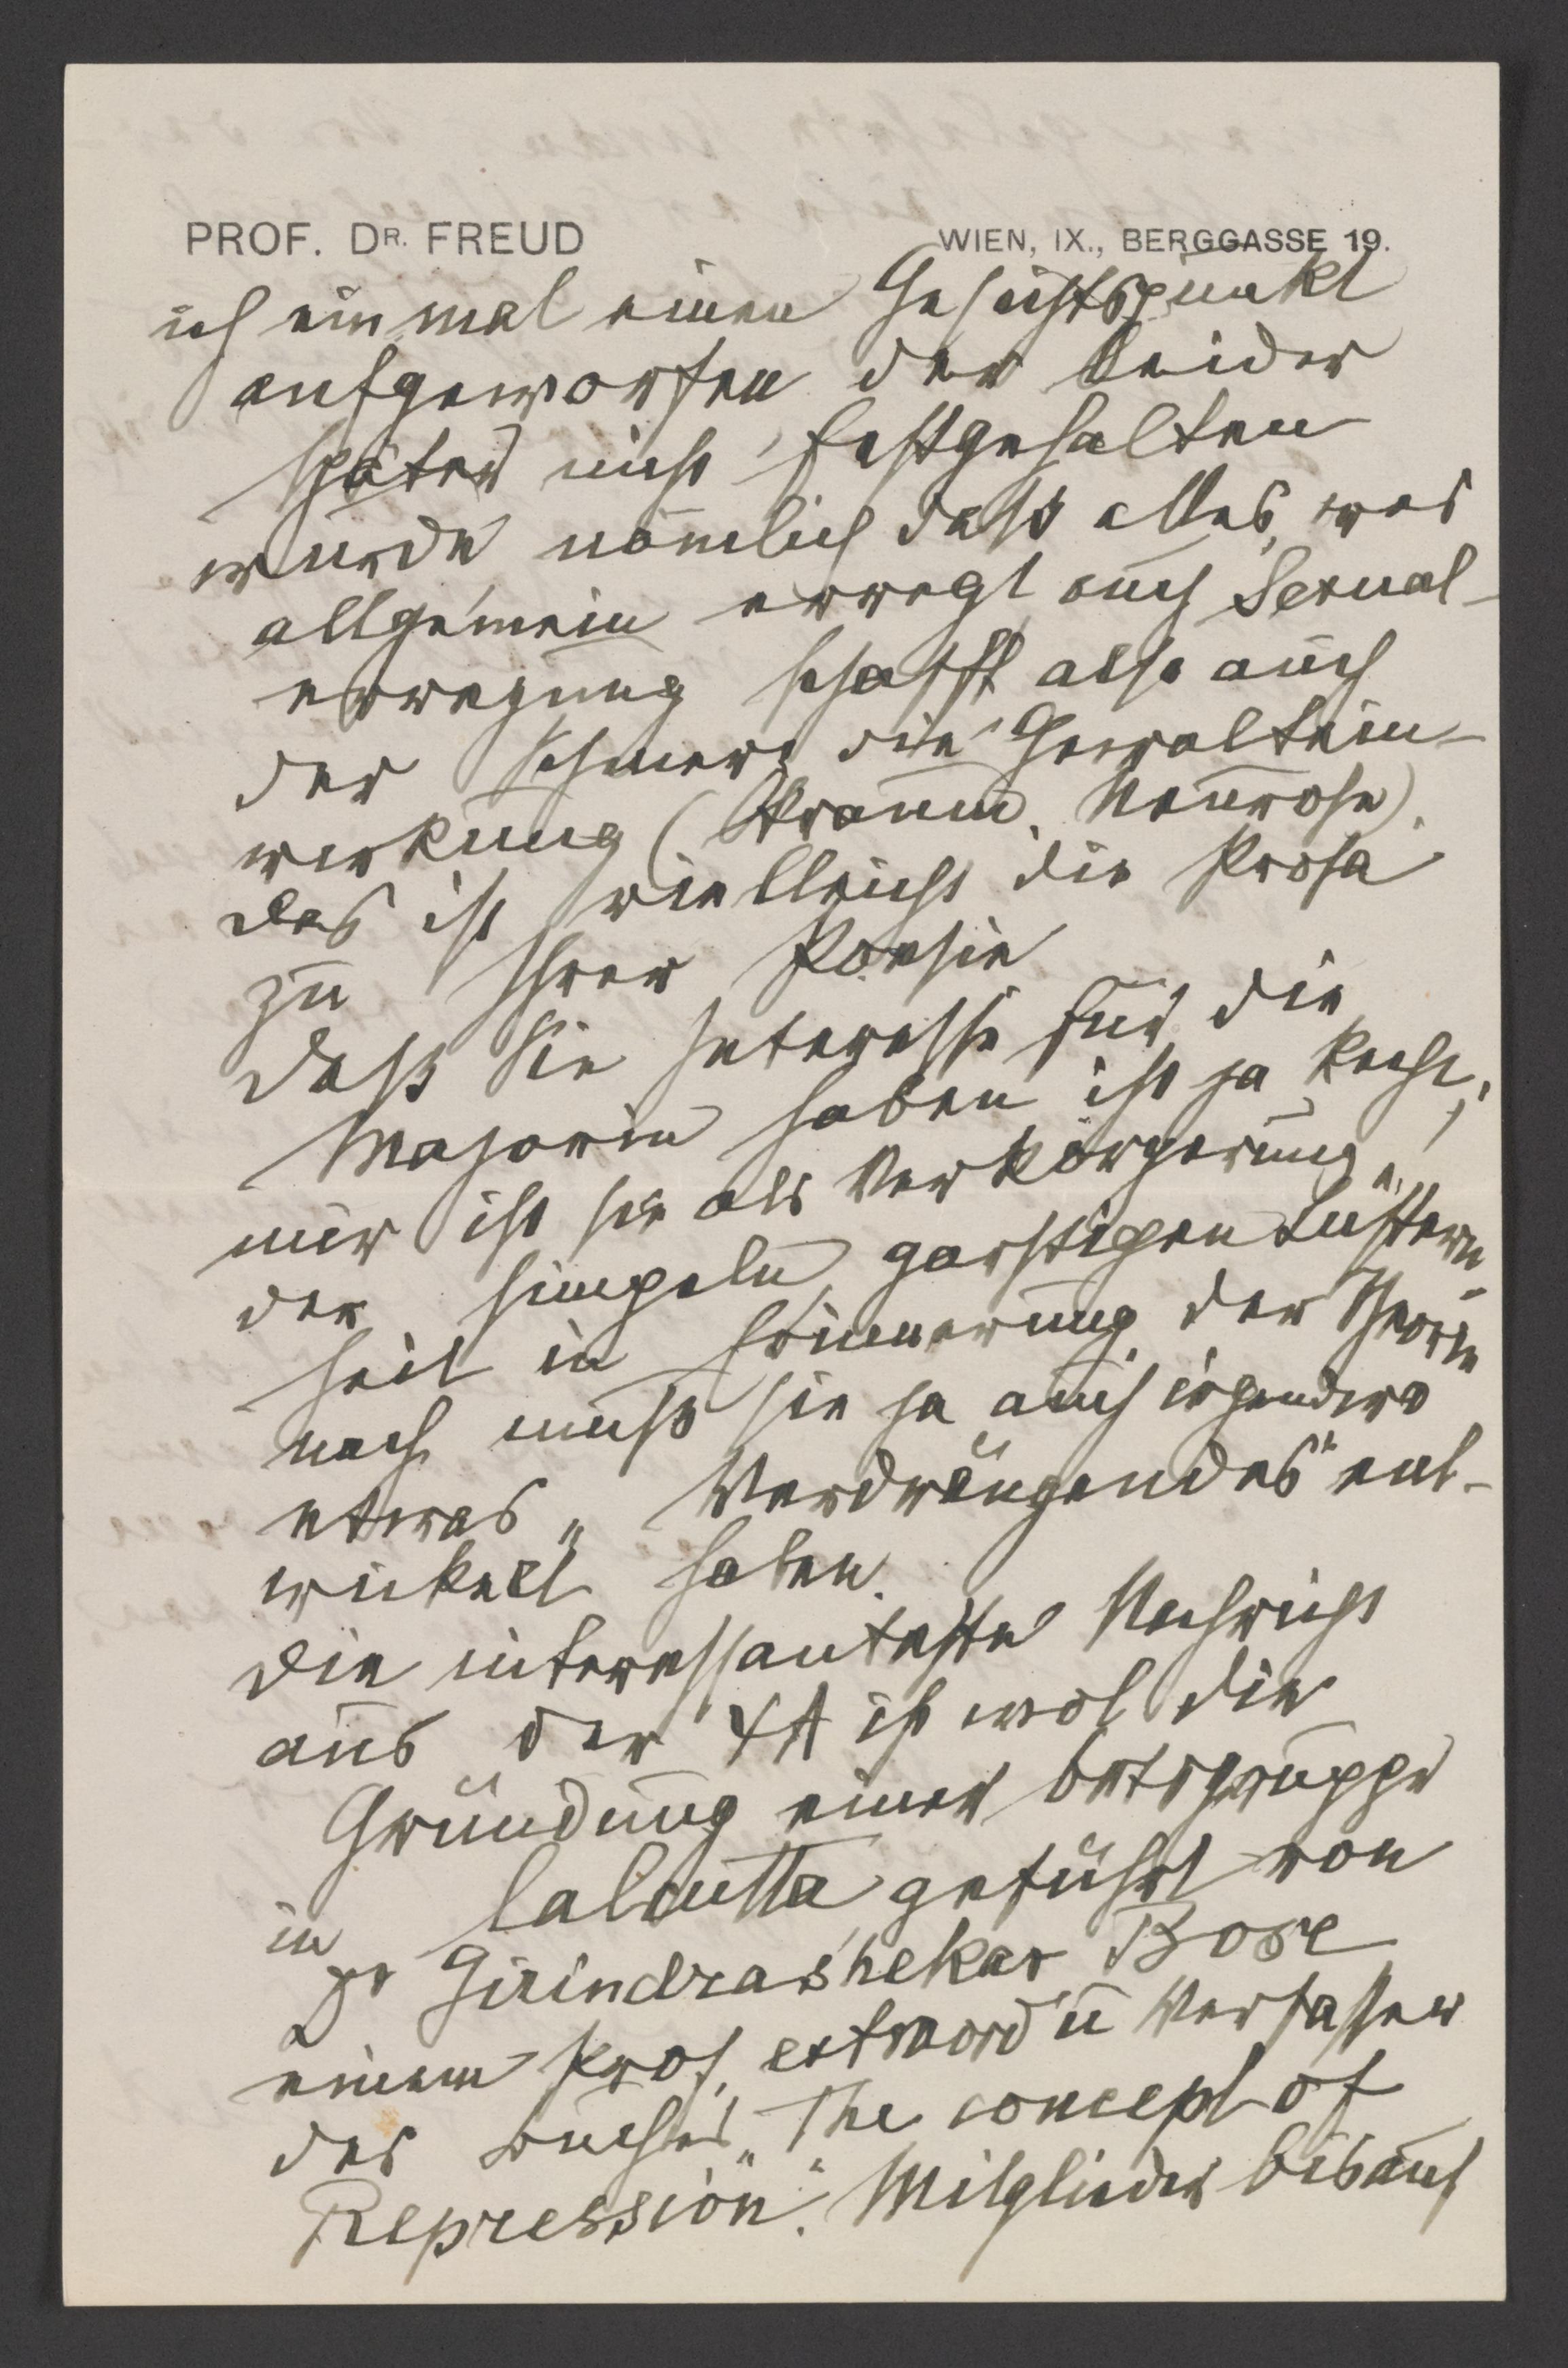 PROF. DR. FREUD WIEN, IX., BERGGASSE 19.
ich einmal einen Gesichtspunkt
aufgeworfen der leider
später nicht festgehalten
wurde nämlich daß alles, was
allgemein erregt auch Sexual-
erregung schafft also auch
der Schmerz die Gewaltein-
wirkung (Traum. Neurose).
Das ist vielleicht die Prosa
zu Ihrer Poesie
Daß Sie Interesse für die
Majorin haben ist ja Recht,
mir ist sie als Verkörperung
der simpeln, garstigen Lüstern-
heit in Erinnerung. Der Theorie
nach muß sie ja auch irgendwo
etwas „Verdrängendes" ent-
wickelt haben.
Die interessanteste Nachricht
aus der ΨA ist wol die
Gründung einer Ortsgruppe
in Calcutta geführt von
Dr Girindrashekar Bose
einem Prof. extraord u Verfasser
des Buches „The concept of
Repression". Mitglieder bis auf